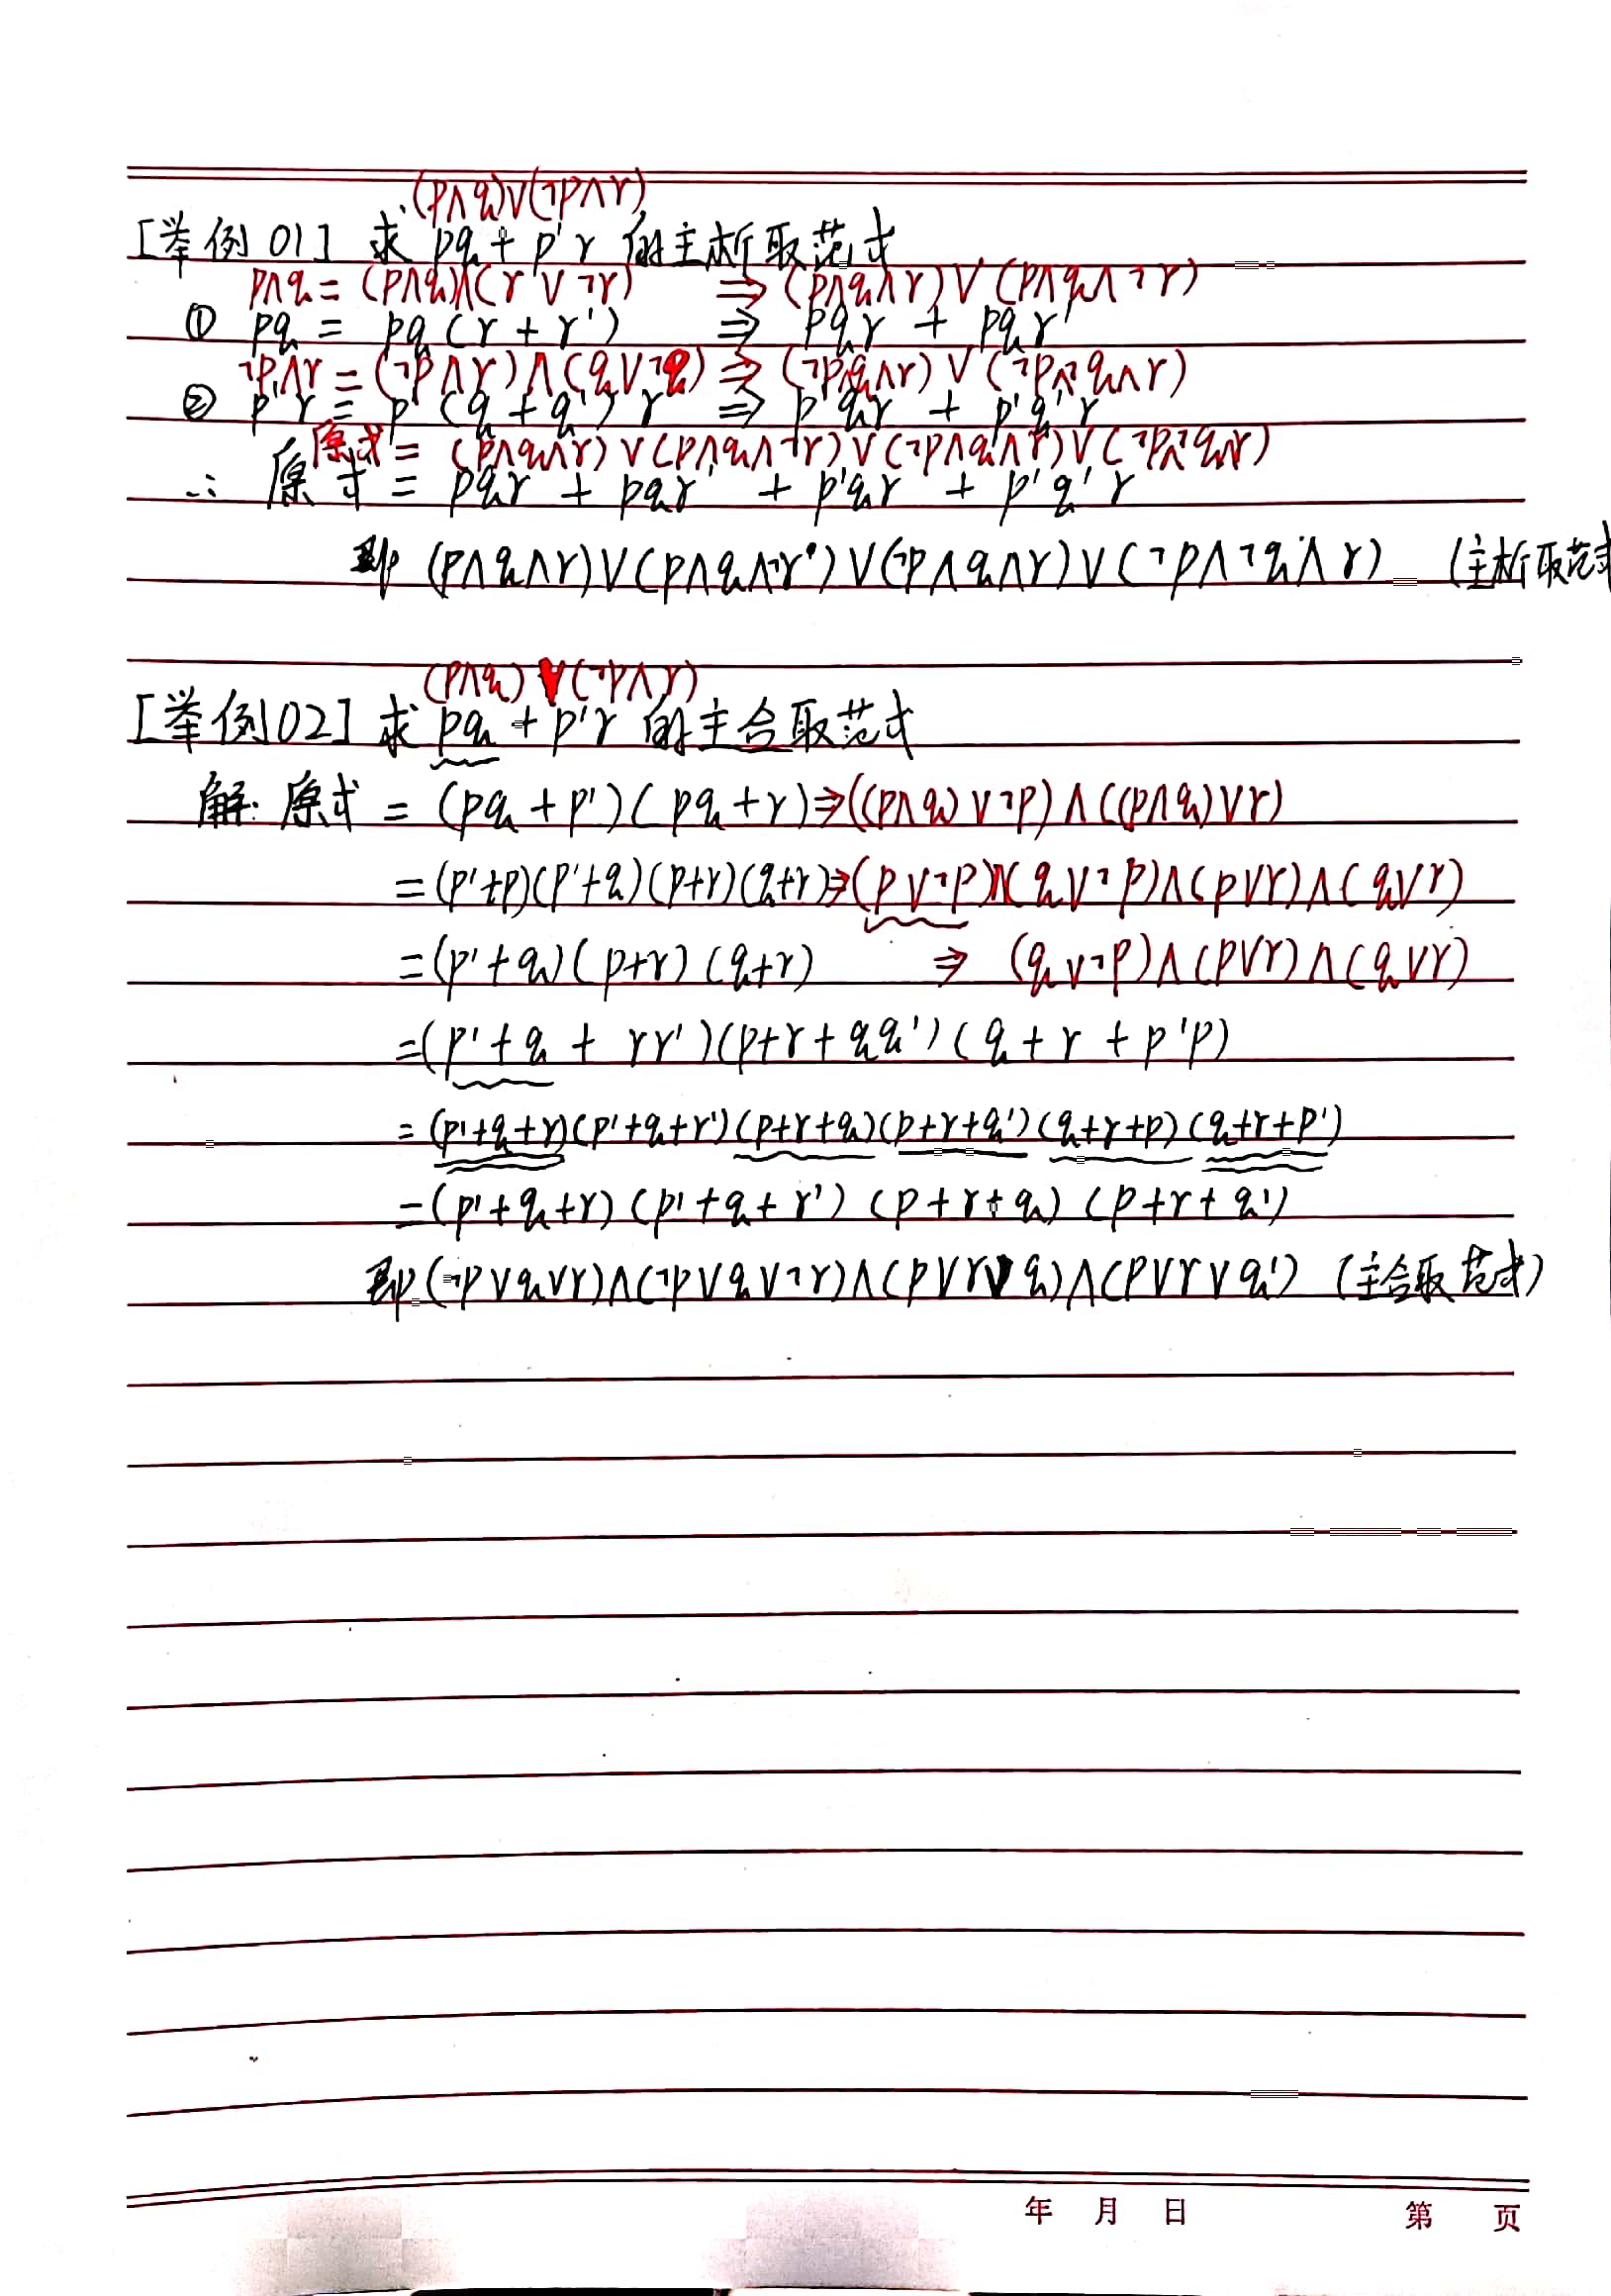 (p∧q)∨(¬p∧r)
[举例01] 求 pq + p'r 的主析取范式
p∧q = (p∧q)∧(r∨¬r) ⇒ (p∧q∧r)∨(p∧q∧¬r)
① pq = pq(r+r') ⇒ pqr + pqr'
¬p∧r = (¬p∧r)∧(q∨¬q) ⇒ (¬p∧q∧r)∨(¬p∧¬q∧r)
② p'r = p'(q+q')r ⇒ p'qr + p'q'r
原式 = (p∧q∧r)∨(p∧q∧¬r)∨(¬p∧q∧r)∨(¬p∧¬q∧r)
∴ 原式 = pqr + pqr' + p'qr + p'q'r
即 (p∧q∧r)∨(p∧q∧¬r)∨(¬p∧q∧r)∨(¬p∧¬q∧r) (主析取范式
(p∧q)∨(¬p∧r)
[举例02] 求 pq + p'r 的主合取范式
解: 原式 = (pq+p')(pq+r) ⇒ ((p∧q)∨¬p)∧((p∧q)∨r)
= (p'+p)(p'+q)(p+r)(q+r) ⇒ (p∨¬p)∧(q∨¬p)∧(p∨r)∧(q∨r)
= (p'+q)(p+r)(q+r) ⇒ (q∨¬p)∧(p∨r)∧(q∨r)
= (p'+q + rr')(p+r+qq')(q+r+p'p)
= (p'+q+r)(p'+q+r')(p+r+q)(p+r+q')(q+r+p)(q+r+p')
= (p'+q+r)(p'+q+r')(p+r+q)(p+r+q')
即 (¬p∨q∨r)∧(¬p∨q∨¬r)∧(p∨r∨q)∧(p∨r∨q') (主合取范式)
年 月 日 第 页